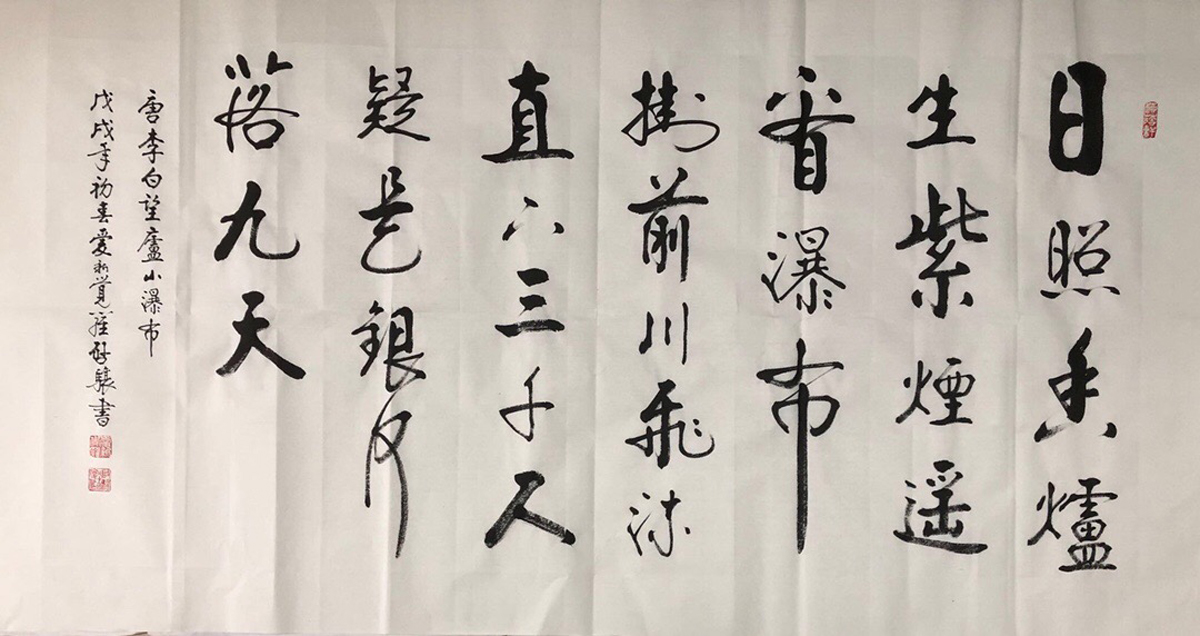 日照香爐
生紫煙遥
看瀑布
掛前川飛流
直下三千尺
疑是銀河
落九天
唐李白望廬山瀑布
戊戌年初春愛新覺羅啓驤書